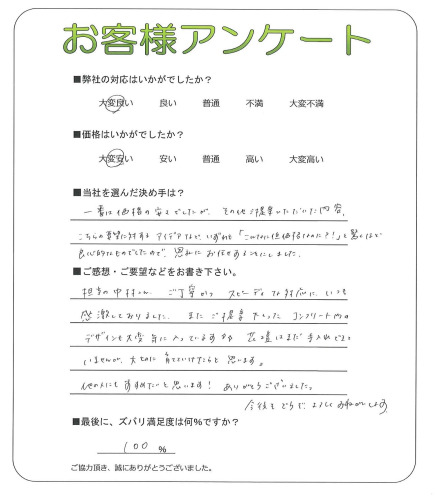 お客様アンケート
■弊社の対応はいかがでしたか？
大変良い 良い 普通 不満 大変不満
■価格はいかがでしたか？
大変安い 安い 普通 高い 大変高い
■当社を選んだ決め手は？
一番は価格の安さでしたが、その他ご提案いただいた内容、
こちらの要望に対するアイデアなど、いずれも「こんなに低価格なのに？！」と驚くほど
良心的なものでしたので、思わずお任せすることにしました。
■ご感想・ご要望などをお書き下さい。
担当の中村さん、ご丁寧かつスピーディな対応に、いつも
感激しておりました。またご提案下さったコンクリート内の
デザインも大変気に入っています 花壇はまだ手入れできて
いませんが、大切に育てていけたらと思います。
他の人にもすすめたいと思います！ ありがとうございました。
今後もどうぞ、よろしくお願いします
■最後に、ズバリ満足度は何%ですか？
100 %
ご協力頂き、誠にありがとうございました。